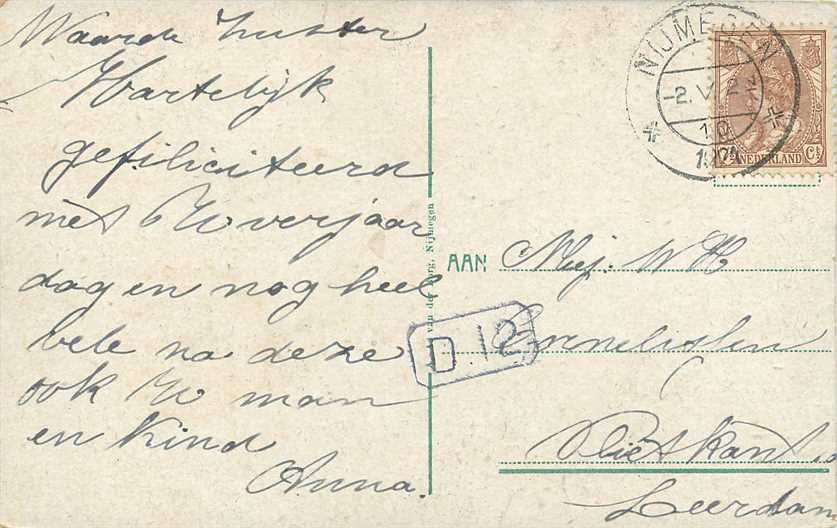 Waarde Zuster
Hartelijk
gefiliciteerd
met Uw verjaar
dag en nog heel
vele na deze
ook Uw man
en kind
Anna.
van den Berg, Nijmegen
NIJMEGEN
-2. V
1921
NEDERLAND
Ct
AAN Mej. W H
Cornelissen
D 12
Vlietkant
Leerdam